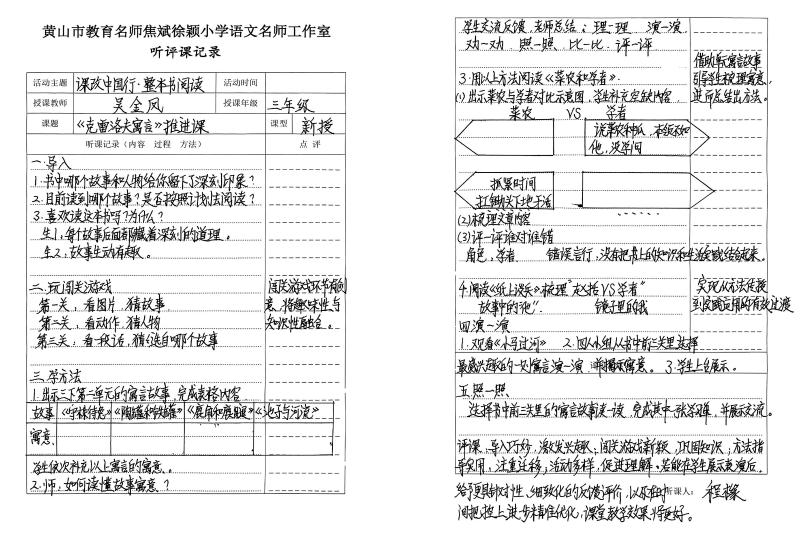 黄山市教育名师焦斌徐颖小学语文名师工作室
听评课记录
活动主题 课改中国行·整本书阅读 活动时间
授课教师 吴金凤 授课年级 三年级
课题 《克雷洛夫寓言》推进课 课型 新授
听课记录（内容 过程 方法） 点 评
一.导入
1.书中哪个故事和人物给你留下了深刻印象？
2.目前读到哪个故事？是否按照计划去阅读？
3.喜欢读这本书吗？为什么？
生1：每个故事后面都藏着深刻的道理。
生2：故事生动有趣。
二.玩闯关游戏 闯关游戏环节有创
第一关：看图片，猜故事 意，将趣味性与
第二关：看动作，猜人物 知识性融合。
第三关：看一段话，猜选自哪个故事
三.学方法
1.出示三下第一单元的寓言故事，完成表格内容
故事 《守株待兔》《陶罐和铁罐》《鹿角和鹿腿》《池子与河流》
寓意
学生依次补充以上寓言的寓意。
2.师：如何读懂故事寓意？
学生交流反馈，老师总结：理一理 演一演
劝一劝 照一照 比一比 评一评 借助寓言故事
3.用以上方法阅读《菜农和学者》. 引导学生梳理寓意，
(1)出示菜农与学者对比示意图，学生补充空缺内容 进而总结出方法。
菜农 VS 学者
说菜农种瓜，本领不如
他，没学问
抓紧时间
扛锄头下地干活
(2)梳理文章内容
(3)评一评谁对谁错
角色，学者 错误言行，没有把书上的知识和生活实践结合起来。
4.阅读《纸上谈兵》梳理"赵括VS学者" 实现从方法传授
故事中的"他" 镜子里的我 到实践运用的有效过渡
四.演一演
1.观看《小马过河》 2.四人小组从书中前三关里选择
最感兴趣的一处寓言演一演 并揭示寓意。 3.学生上台展示。
五.照一照
选择书中前三关里的寓言故事读一读，完成其中一张学习单，并展示交流。
评课：导入巧妙，激发兴趣；闯关游戏新颖，巩固知识；方法指
导实用，注重迁移；活动多样，促进理解。若能在学生展示表演后，
给予更具针对性、细致化的反馈评价，以及在时 听课人：程稼
间把控上进一步精准优化，课堂教学效果将更好。